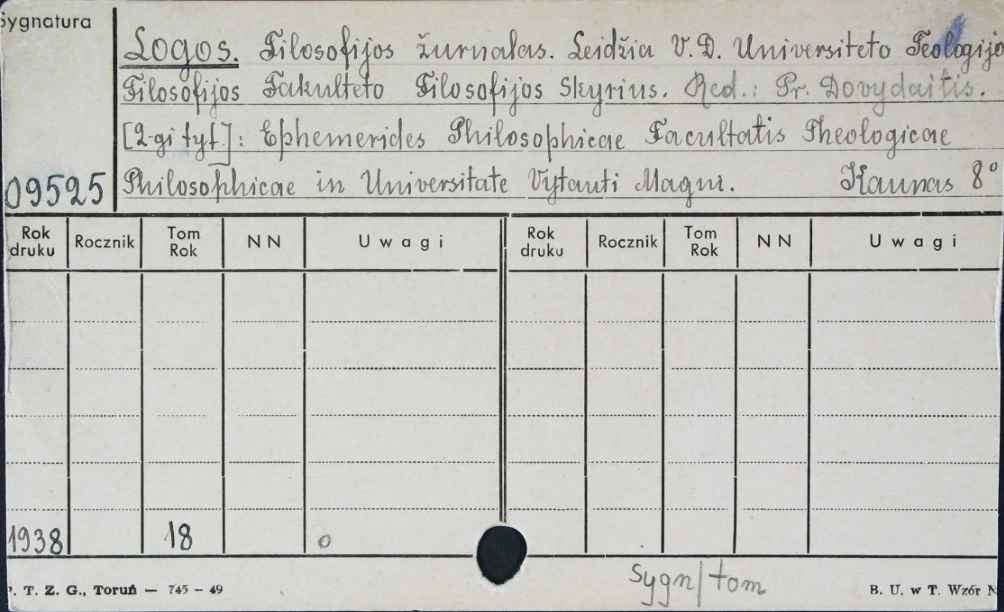 Sygnatura
Logos. Filosofijos žurnalas. Leidžia V. D. Universiteto Teologijo
Filosofijos Fakulteto Filosofijos Skyrius. Red.: Pr. Dovydaitis.
[2-gi tyt.]: Ephemerides Philosophicae Facultatis Theologicae
09525 Philosophicae in Universitate Vytauti Magni. Kaunas 8°
Rok druku Rocznik Tom Rok NN Uwagi Rok druku Rocznik Tom Rok NN Uwagi
1938 18 o
Sygn/tom
P. T. Z. G., Toruń — 745 – 49 B. U. w T. Wzór N